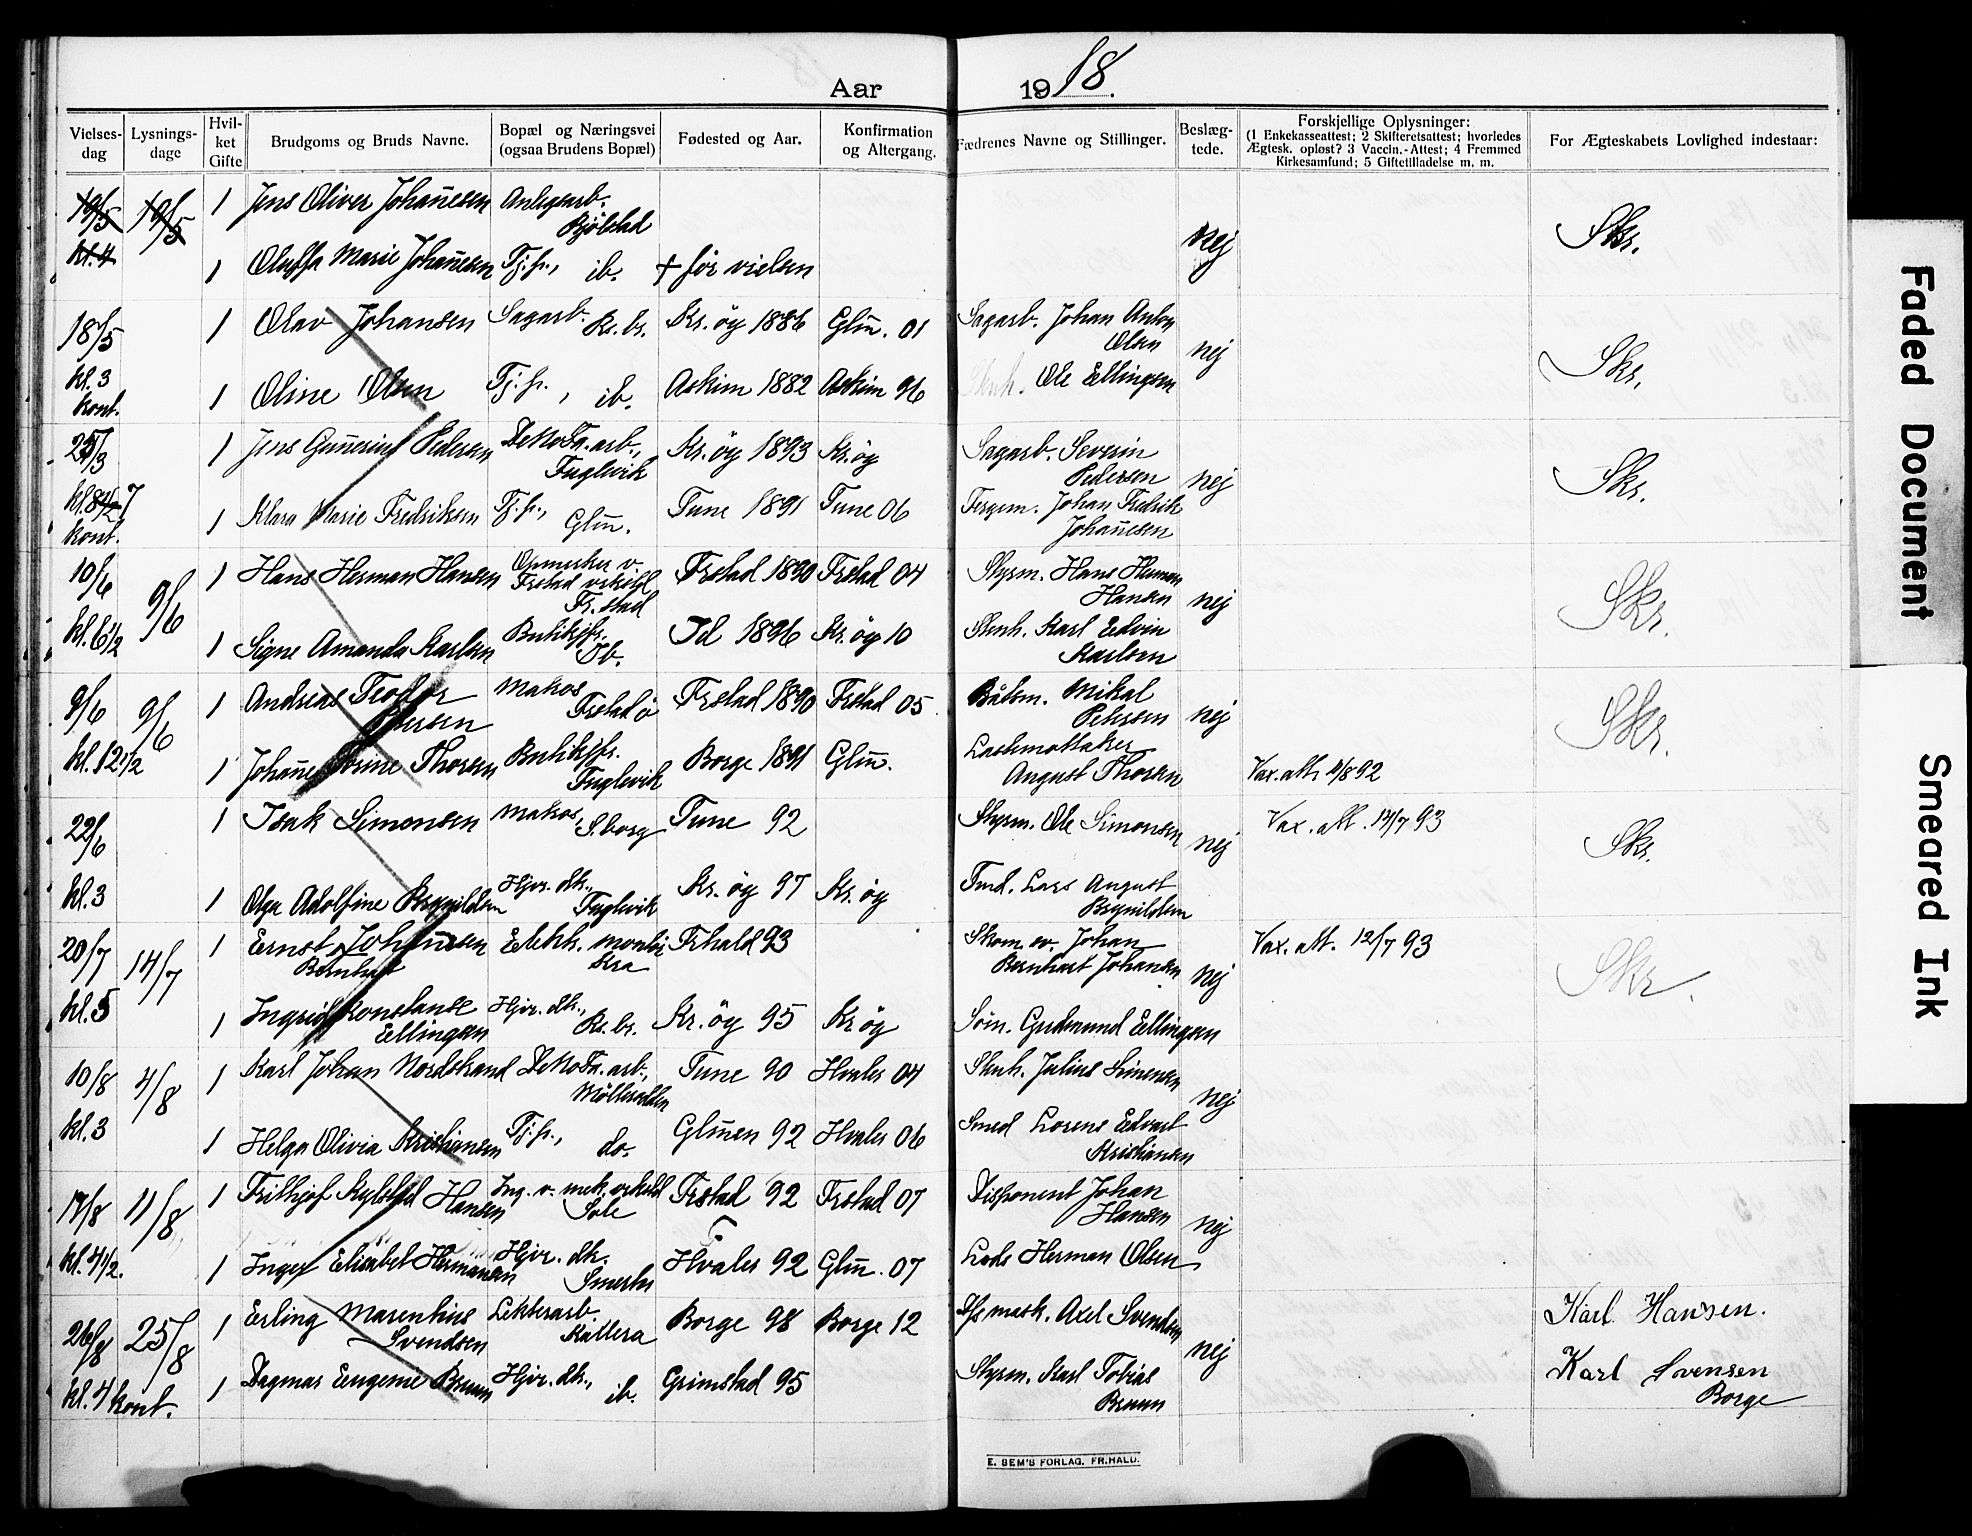 Aar 1918.
Vielsesdag | Lysningsdage | Hvilket Gifte | Brudgoms og Bruds Navne. | Bopæl og Næringsvei (ogsaa Brudens Bopæl) | Fødested og Aar. | Konfirmation og Altergang. | Fædrenes Navne og Stillinger. | Beslægtede. | Forskjellige Oplysninger: (1 Enkekasseattest; 2 Skifteretsattest; hvorledes Ægtesk. opløst? 3 Vaccin.-Attest; 4 Fremmed Kirkesamfund; 5 Giftetilladelse m. m. | For Ægteskabets Lovlighed indestaar:
19/5 kl. 4 | 19/5 | 1 | Jens Oliver Johan̄esen | Anlegsarb. Bjölstad | nej | Skr.
1 | Oluffa Marie Johan̄esen | Tj.p., ib. | † før vielsen
18/5 kl. 3 kont. | 1 | Olav Johansen | Sagarb. Kr.br. | Kr.öy 1886 | Glm̄. 01 | Sagarb. Johan Anton Olsen | nej | Skr.
1 | Oline Olsen | Tj.p., ib. | Askim 1882 | Askim 96 | Ole Ellingsen
kont. | 1 | Jens Gun̄erius Pedersen | DeNoFa.arb., Fuglevik | Kr.öy 1893 | Kr.öy | Sagarb. Severin Pedersen | nej | Skr.
1 | Klara Marie Fredriksen | Tj.p., Glm̄. | Tune 1891 | Tune 06 | Fergem. Johan Fredrik Johan̄esen
10/6 kl. 6 1/2 | 9/6 | 1 | Hans Herman Hansen | Opmerker v. Frstad vrksted Fr.stad | Frstad 1890 | Frstad 04 | Styrm. Hans Herman Hansen | nej | Skr.
1 | Signe Amanda Karlsen | Butikfr. Ib. | Id 1896 | Kr.öy 10 | Stenh. Karl Edvin Karlsen
9/6 kl. 12 1/2 | 9/6 | 1 | Andreas Teodor Petersen | Matros Frstad ö | Frstad 1890 | Frstad 05 | Båtsm. Mikal Petersen | nej | Skr.
1 | Johan̄e Thorsen | Butikfr. Fuglevik | Borge 1891 | Glm̄. | Lastemottaker August Thorsen | Vax. att. 4/8 92
22/6 kl. 3 | 1 | Isak Simonsen | Matros, S.borg | Tune 92 | Styrm. Ole Simonsen | nej | Vax. att. 13/7 93 | Skr.
1 | Olga Adolfine Brynildsen | Hjv. dtr., Fuglevik | Kr.öy 97 | Kr.öy | Tmd. Lars August Brynildsen
20/7 kl. 5 | 14/7 | 1 | Ernst Bernhart Johansen | Elektr. montör Kra | Frhald 93 | Skom.sv. Johan Bernhart Johansen | nej | Vax. att. 12/7 93 | Skr.
1 | Ingrid Konstanse Ellingsen | Hjv. dtr., Kr.br. | Kr.öy 95 | Kr öy | Söm. Gudmund Ellingsen
10/8 kl. 3 | 4/8 | 1 | Karl Johan Nordstrand | DeNoFa.arb., Mölleråden | Tune 90 | Hvaler 04 | Stenh. Julius Simensen | nej
1 | Helga Olivia Kristiansen | Tj.p., do. | Glm̄en 92 | Hvaler 06 | Smed Lorens Edvart Kristiansen
17/8 kl. 4 1/2. | 11/8 | 1 | Frithjof Kylstad Hansen | Ing. v. mek. vrksted Sole | Frstad 92 | Frstad 07 | Disponent Johan Hansen | nej
1 | Inger Elisabet Hermansen | Hjv. dtr. Smertu | Hvaler 92 | Glm̄. 07 | Lods Herman Olsen
26/8 kl. 4 kont. | 25/8 | 1 | Erling Marentius Svendsen | Lekterarb. Kallera | Borge 98 | Borge 12 | mask. Axel Svendsen | nej | Karl Hansen.
1 | Dagmar Eugenie Bruun | Hjv. dtr., ib. | Grimstad 95 | Styrm. Karl Tobias Bruun | Karl Svensen Borge
E. SEM'S FORLAG. FR.HALD.
Faded Document
Smeared Ink